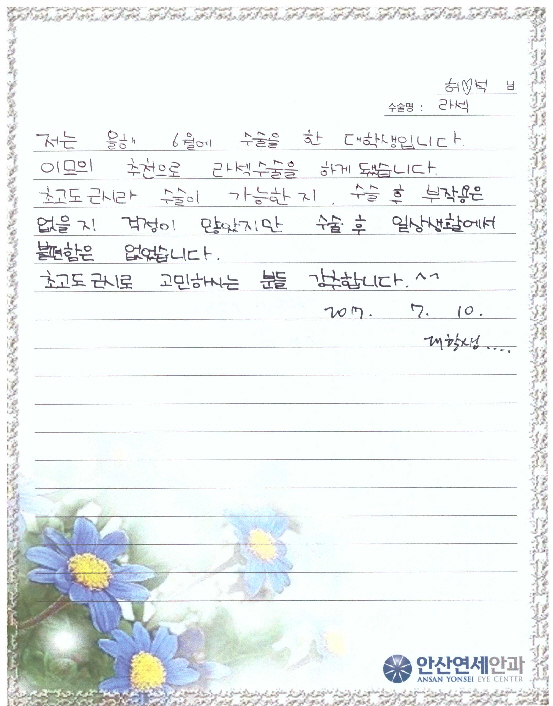 허♡석 님
수술명 : 라섹
저는 올해 6월에 수술을 한 대학생입니다.
이모의 추천으로 라섹수술을 하게 됐습니다.
초고도 근시라 수술이 가능한지, 수술 후 부작용은
없을지 걱정이 많았지만 수술 후 일상생활에서
불편함은 없었습니다.
초고도 근시로 고민하시는 분들 강추합니다.^^
2017. 7. 10.
대학생....
안산연세안과
ANSAN YONSEI EYE CENTER